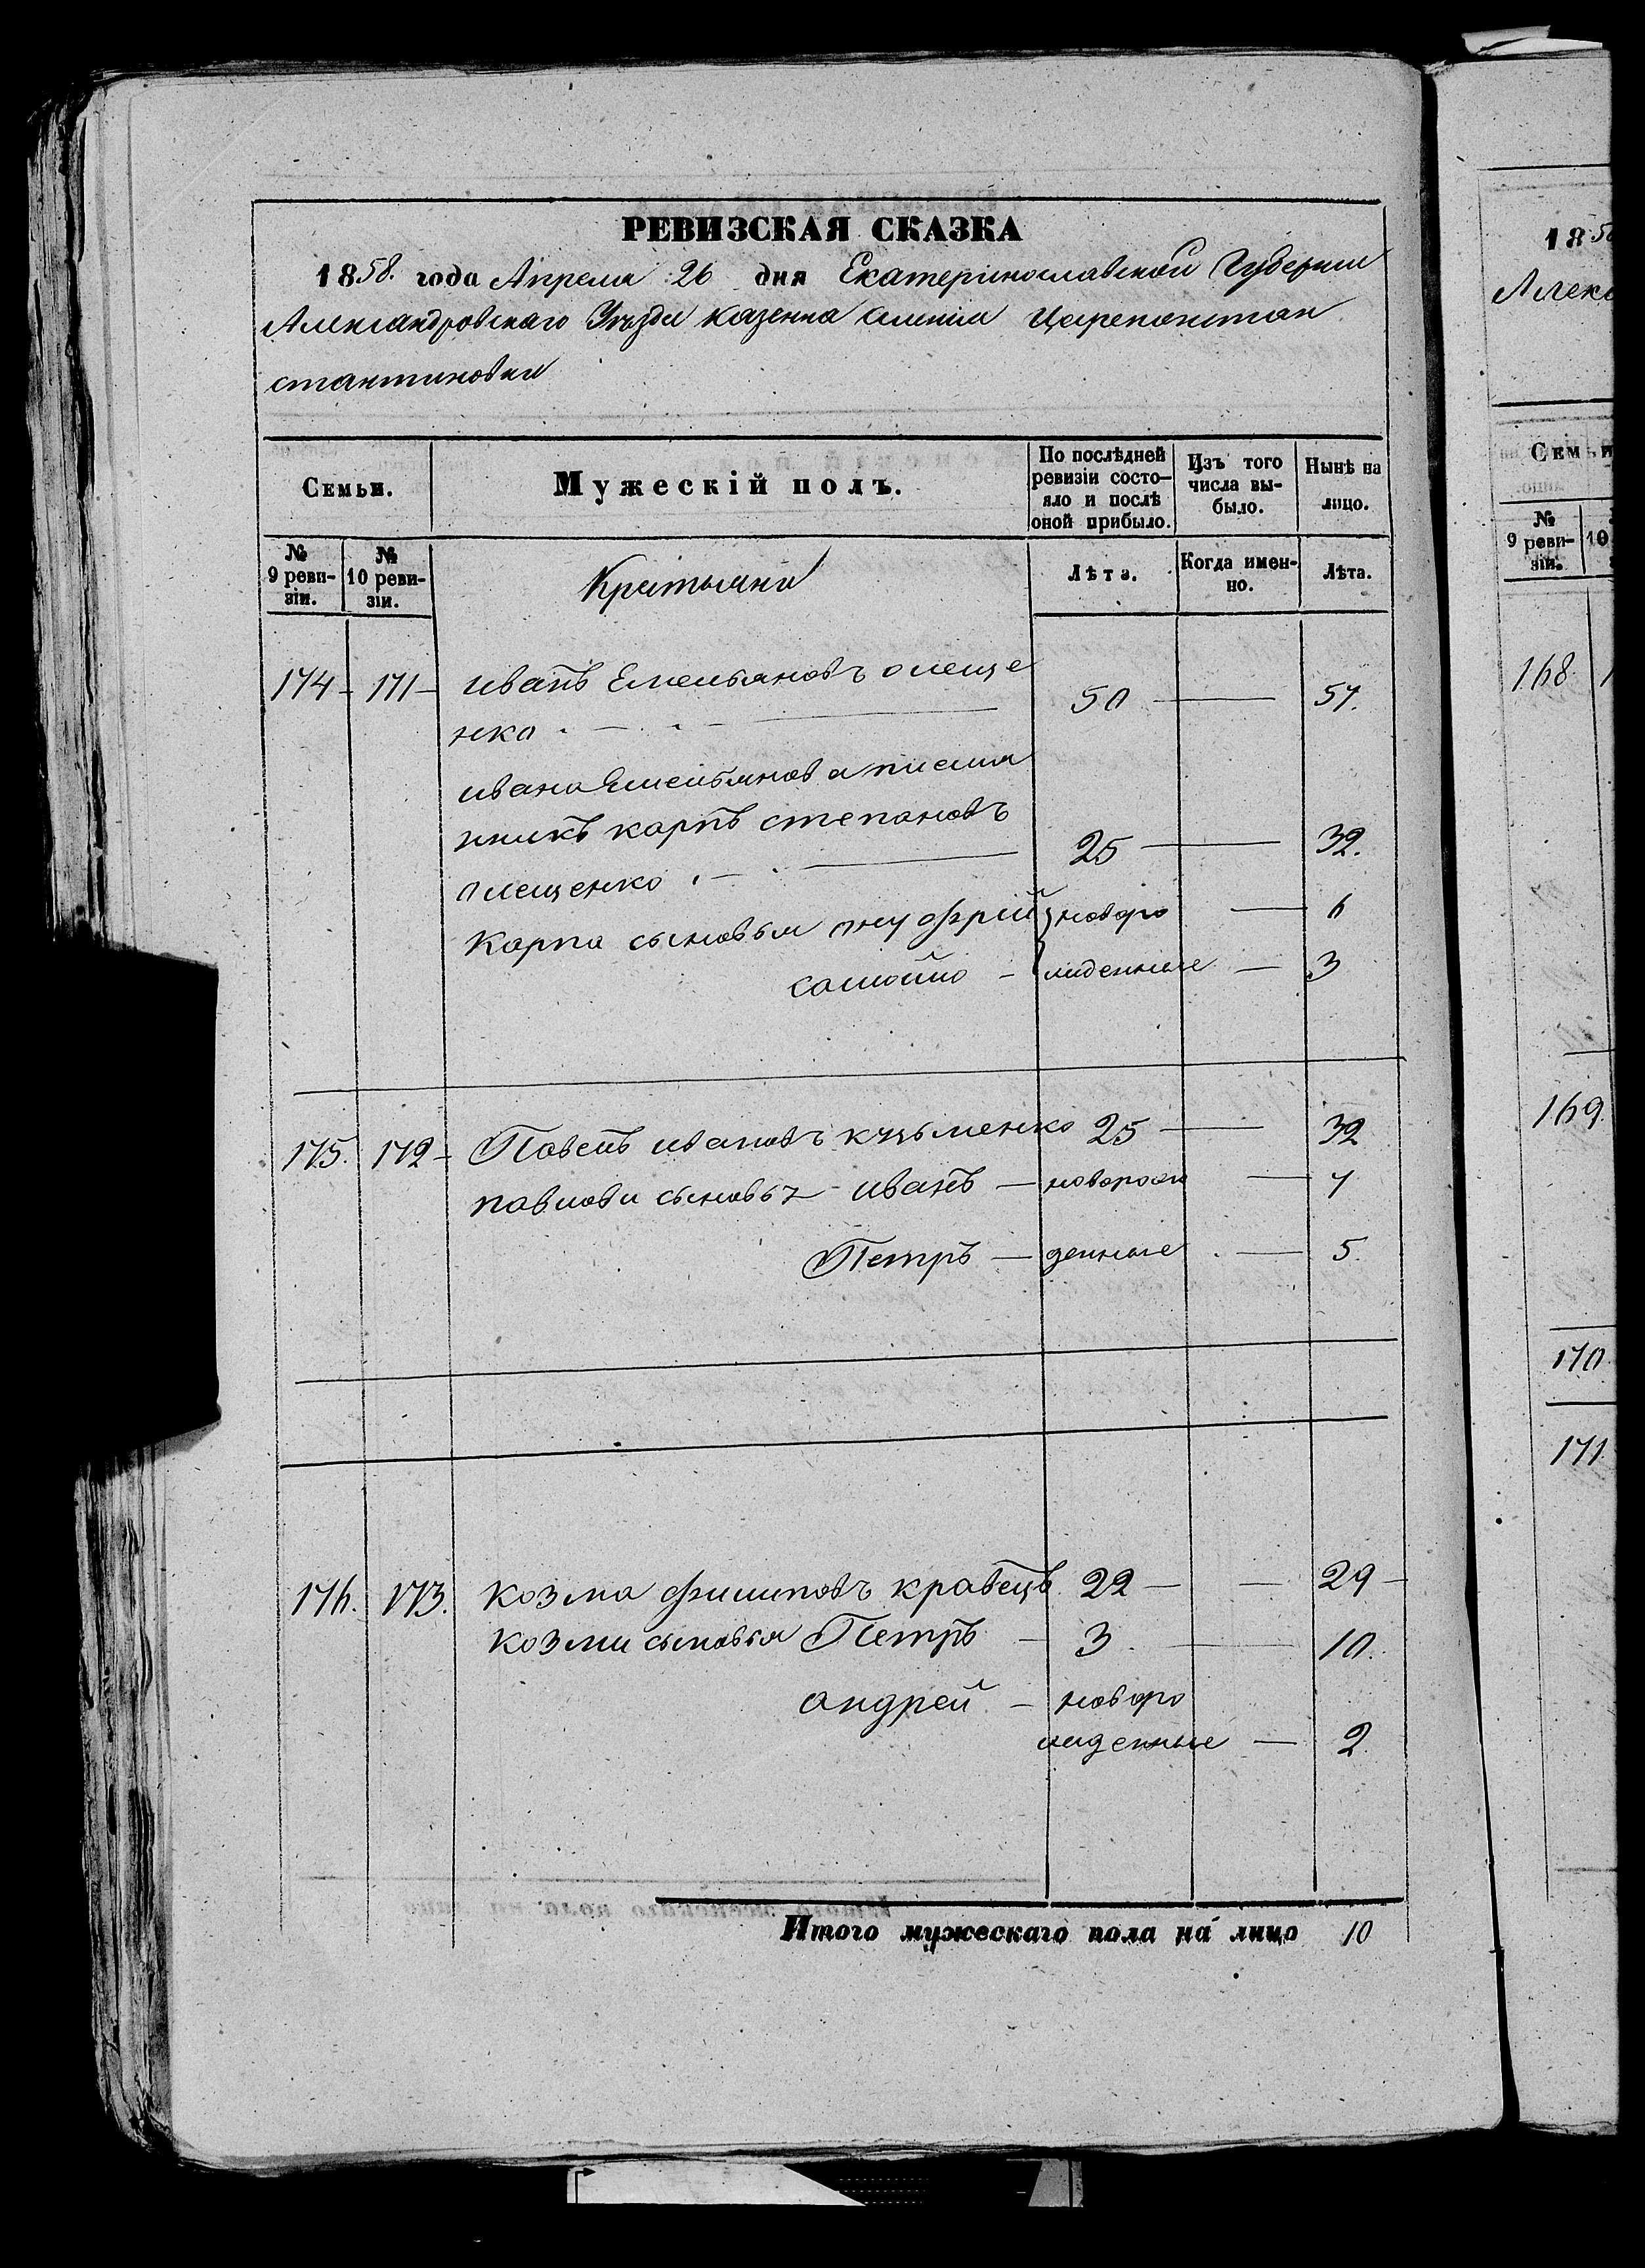 РЕВИЗСКАЯ СКАЗКА
1858. года Апреля 26 дня Екатеринославской Губернии
Александровскаго Уѣзда казенна селенія Цареконстан
стантиновки
Семьи.
Мужескій полъ.
По послѣдней ревизіи состо-
яло и послѣ
оной прибыло.
Изъ того
числа вы-
было.
Нынѣ на
лицо.
№
9 реви-
зіи.
№
10 реви-
зіи.
Крестьяне
Лѣта.
Когда имен-
но.
Лѣта.
174 - 171 - иванъ Емельяновъ олеще 50 — 57.
нко
ивана Емельянова племя
нникъ карпъ степановъ 25 — 32.
олещенко
Карпа сыновья онуфрій новоро — 6
самойло - жденные — 3
175. 172 - Павелъ ивановъ кузьменко 25 — 32
павлови сыновья иванъ — новорож — 7
Петръ — денные — 5.
176. 173. козма филиповъ кравецъ 22 — — 29 -
козми сыновья Петръ - 3. — 10.
андрей - новоро
жденные — 2.
Итого мужескаго пола на лицо 10
1858
Алекс
Семьи
№
9 реви-
зіи.
10
168.
169.
170.
171.